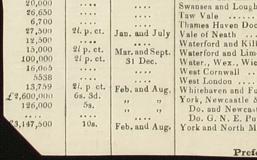 20,000 .... .... Swansea and Lough
26,650 .... .... Taw Vale ....
6,700 .... .... Thames Haven Doc
27,500 2l. p. ct. Jan. and July Vale of Neath ....
12,500 .... .... Waterford and Kil
15,000 2l. p. ct. Mar. and Sept. Waterford and Lim
100,000 2l. p. ct. 31 Dec. Water., Wex., Wic
16,065 .... .... West Cornwall ..
5538 .... .... West London ....
13,759 2l. p. ct. Feb. and Aug. Whitehaven and Fu
£2,600,000 6s. 3d. " " York, Newcastle
126,000 5s. " " Do. and Newca
.... .... Do. G. N. E. Pu
£3,147,500 10s. Feb. and Aug. York and North M
Pref